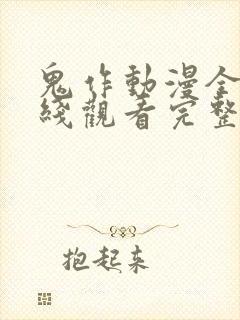 鬼作動漫全
綫觀看完整
抱起来